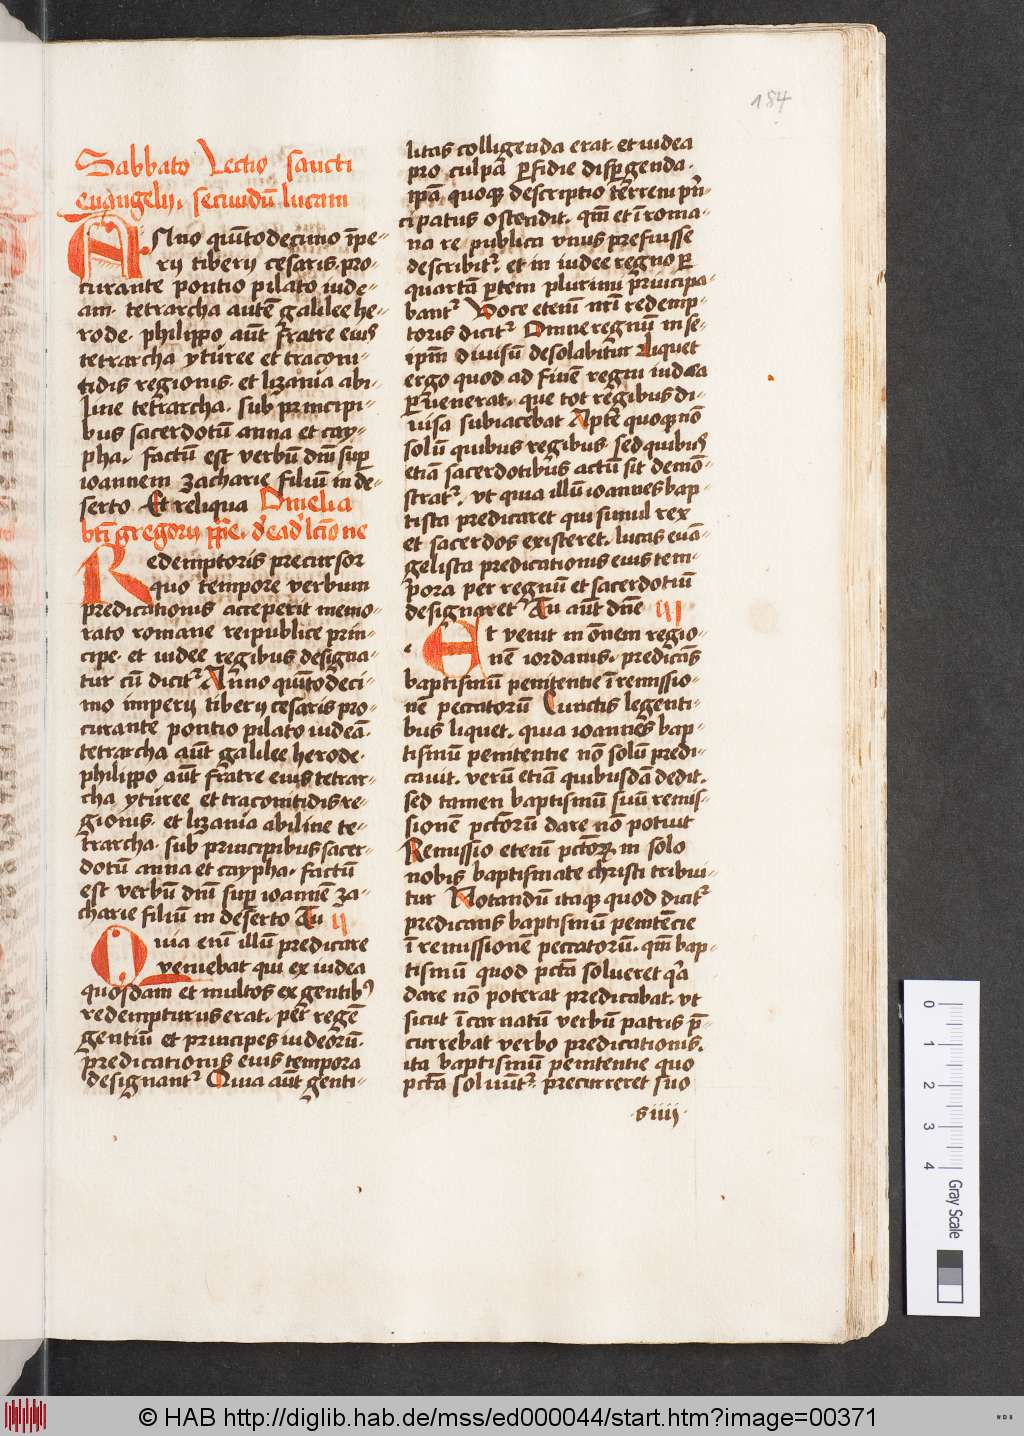 184
Sabbato Lectio sancti
euangelij. secundū lucam
ANno quītodecimo īpe-
rij tiberij cesaris. pro-
curante pontio pilato iude-
am. tetrarcha autē galilee he-
rode. philippo aūt fratre eius
tetrarcha yturee et traconi-
tidis regionis. et lizania abi-
line tetrarcha. sub principi-
bus sacerdotū anna et cay-
pha. factum est verbū dnī sup
ioannem zacharie filiū in de-
serto Et reliqua Omelia
btī gregorij ppe. de eadē lctione
Redemptoris precursor
quo tempore verbum
predicationis acceperit memo-
rato romane reipublice prin-
cipe. et iudee regibus designa-
tur cū dicit᷑ Anno quītodeci-
mo imperij tiberij cesaris pro-
curante pontio pilato iudeā.
tetrarcha aūt galilee herode.
philippo aūt fratre eius tetrar-
cha yturee et traconitidis re-
gionis. et lizania abiline te-
trarcha. sub principibus sacer-
dotū anna et caypha. factū
est verbū dnī sup ioannē za-
charie filiū in deserto Tu ij
Quia enī illū predicare
veniebat qui ex iudea
quosdam et multos ex gentibꝰ
redempturus erat. per regē
gentiū et principes iudeorū.
predicationis eius tempora
designant᷑ Quia aūt genti-
litas colligenda erat. et iudea
pro culpa ꝑfidie dispergenda.
ipā quoqꝫ descriptio terreni prī-
cipatus ostendit. qm̄ et ī roma-
na re publica vnus prefuisse
describit᷑. et in iudee regno per
quartā ꝑtem plurimi principa-
bant᷑ Voce etenī nrī redemp-
toris dicit᷑ Omne regnū in se-
ipm̄ diuisū desolabitur Liquet
ergo quod ad finē regni iudea
ꝑuenerat. que tot regibus di-
uisa subiacebat Apte quoqꝫ nō
solū quibus regibus sed quibꝰ
etiā sacerdotibus actū sit demō-
strat᷑. vt quia illū ioannes bap-
tista predicaret qui simul rex
et sacerdos existeret. lucas euā-
gelista predicationis eius tem-
pora per regnū et sacerdotiū
designaret᷑ Tu aūt dnē iij
Et venit in ōnem regio-
nē iordanis. predicās
baptismū penitentie ī remissio-
nē peccatorū Cunctis legenti-
bus liquet. quia ioannes bap-
tismū penitentie nō solū predi-
cauit. verū etiā quibusdā dedit.
sed tamen baptismū suū remis-
sionē pctorū dare nō potuit
Remissio etenī pctoꝝ in solo
nobis baptismate christi tribui-
tur Notandū itaqꝫ quod dicit᷑
predicans baptismū penitēcie
ī remissionē peccatorū. qm̄ bap-
tismū quod pctā solueret qa
dare nō poterat predicabat. vt
sicut īcarnatū verbū patris p̄-
currebat verbo predicationis.
ita baptismū penitentie quo
pctā soluūt᷑. precurreret suo
s iiij
0 1 2 3 4 Gray Scale
© HAB http://diglib.hab.de/mss/ed000044/start.htm?image=00371